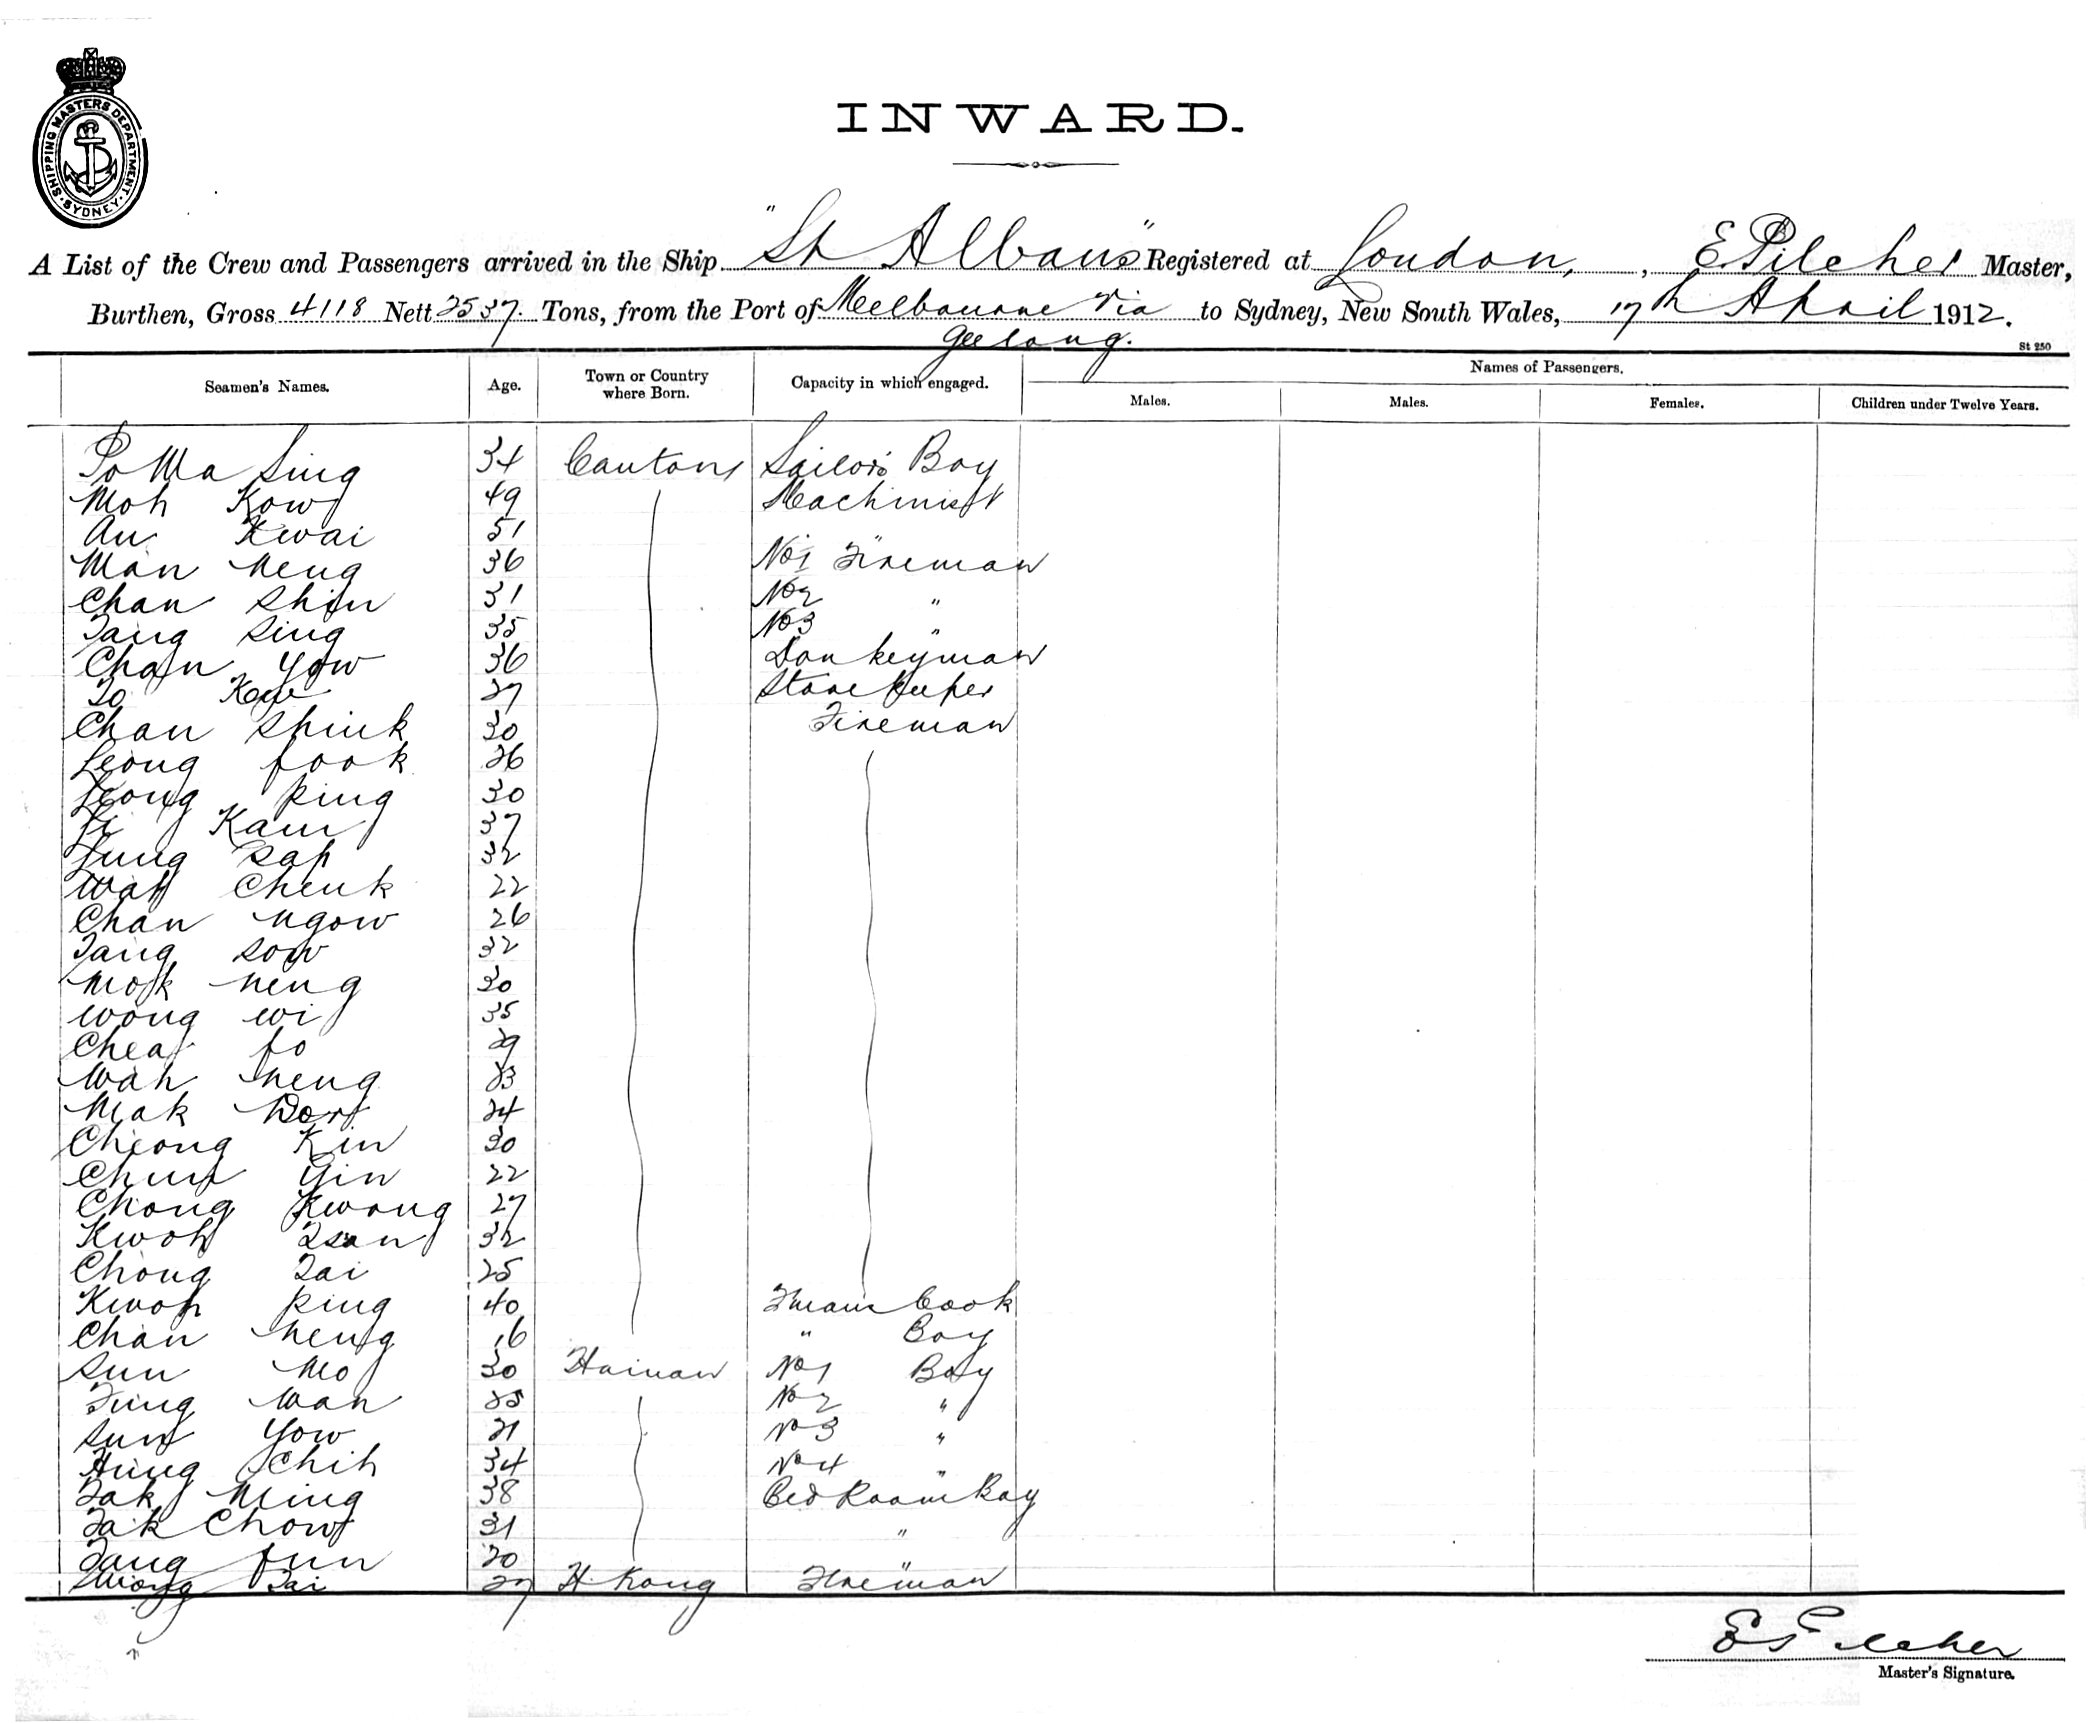 SHIPPING MASTERS DEPARTMENT. SYDNEY.
INWARD.
A List of the Crew and Passengers arrived in the Ship "St Albans" Registered at London, , E Pilcher Master,
Burthen, Gross 4118 Nett 2537. Tons, from the Port of Melbourne Via to Sydney, New South Wales, 17th April 1912.
Geelong.
St 250
Seamen's Names. Age. Town or Country where Born. Capacity in which engaged. Names of Passengers.
Males. Males. Females. Children under Twelve Years.
Po Wa Sing 34 Canton Sailors Boy
Moh Kow 49 Machinist
Au Kwai 51
Man Neng 36 No 1 Fireman
Chan Shin 31 No 2 "
Tang Sing 35 No 3 "
Chan Yow 36 Donkeyman
To 27 Storekeeper
Chan Shiuk 30 Fireman
Leong fook 26
Leong Ring 30
Kam 37
Sap 32
Wah Cheuk 22
Chan Ngow 26
Tang Sow 32
Mok Neng 30
Wong Wi 35
Cheat fo 29
Wah Neng 23
Mak 24
Cheong Kin 30
Chun Yin 22
Chong Kwong 27
Kwoh 32
Chong Tai 25
Kwoh Ring 40 Cook
Chan Neng 16 " Boy
Sun Mo 30 Hainan No 1 Boy
Fung Wan 25 No 2 "
Sun Yow 21 No 3 "
Hung Chih 34 No 4 "
Tak Ming 38 Bed Room Boy
Tak Chow 31 "
Tang fun 20 "
Tai 27 H. Kong Fireman
E Pilcher
Master's Signature.